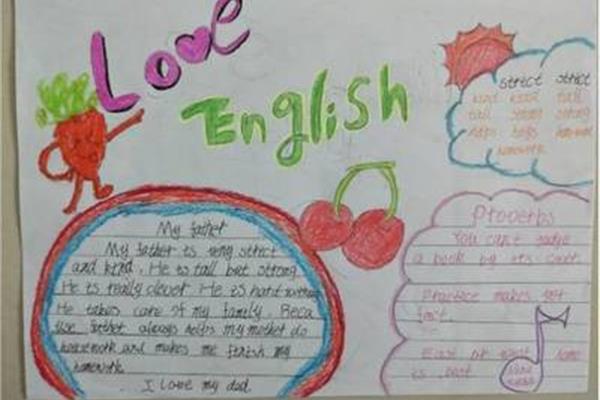 Love
English
strict strict
kind kind tall
tall strong strong
helps
homework
My father
My father is very strict
and kind. He is tall but strong
He is really clever He is hard
He takes care of my family. Beca
use father always helps my mother do
housework and makes me finish my
homework
I love my dad
Proverbs
You can't judge
a book by its cover
Practice makes per
fect.
East or west home
is best